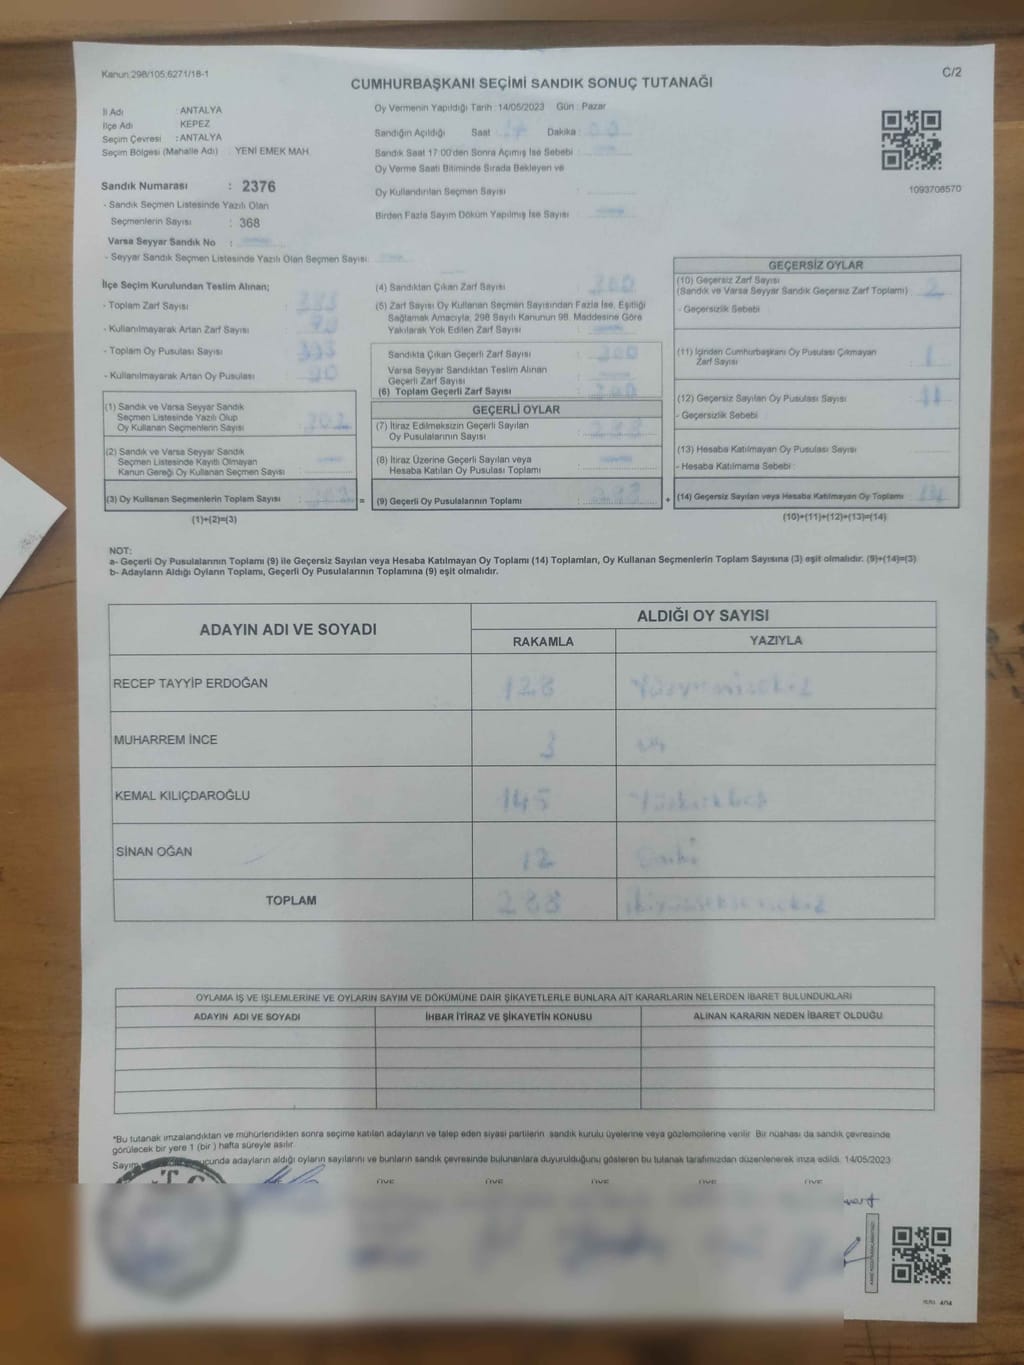 Kanun:298/105,6271/18-1
C/2
CUMHURBAŞKANI SEÇİMİ SANDIK SONUÇ TUTANAĞI
İl Adı : ANTALYA
İlçe Adı : KEPEZ
Seçim Çevresi : ANTALYA
Seçim Bölgesi (Mahalle Adı) : YENİ EMEK MAH.
Sandık Numarası : 2376
- Sandık Seçmen Listesinde Yazılı Olan
Seçmenlerin Sayısı : 368
Varsa Seyyar Sandık No :
- Seyyar Sandık Seçmen Listesinde Yazılı Olan Seçmen Sayısı:
Oy Vermenin Yapıldığı Tarih : 14/05/2023 Gün : Pazar
Sandığın Açıldığı Saat Dakika :
Sandık Saat 17:00'den Sonra Açımış İse Sebebi :
Oy Verme Saati Bitiminde Sırada Bekleyen ve
Oy Kullandırılan Seçmen Sayısı :
Birden Fazla Sayım Döküm Yapılmış İse Sayısı :
1093708570
İlçe Seçim Kurulundan Teslim Alınan;
- Toplam Zarf Sayısı :
- Kullanılmayarak Artan Zarf Sayısı :
- Toplam Oy Pusulası Sayısı : 393
- Kullanılmayarak Artan Oy Pusulası : 90
(1) Sandık ve Varsa Seyyar Sandık
Seçmen Listesinde Yazılı Olup
Oy Kullanan Seçmenlerin Sayısı : 302
(2) Sandık ve Varsa Seyyar Sandık
Seçmen Listesinde Kayıtlı Olmayan
Kanun Gereği Oy Kullanan Seçmen Sayısı :
(3) Oy Kullanan Seçmenlerin Toplam Sayısı : =
(1)+(2)=(3)
(4) Sandıktan Çıkan Zarf Sayısı :
(5) Zarf Sayısı Oy Kullanan Seçmen Sayısından Fazla İse, Eşitliği
Sağlamak Amacıyla, 298 Sayılı Kanunun 98. Maddesine Göre
Yakılarak Yok Edilen Zarf Sayısı :
Sandıkta Çıkan Geçerli Zarf Sayısı : 300
Varsa Seyyar Sandıktan Teslim Alınan
Geçerli Zarf Sayısı :
(6) Toplam Geçerli Zarf Sayısı : 300
GEÇERLİ OYLAR
(7) İtiraz Edilmeksizin Geçerli Sayılan
Oy Pusulalarının Sayısı : 288
(8) İtiraz Üzerine Geçerli Sayılan veya
Hesaba Katılan Oy Pusulası Toplamı :
(9) Geçerli Oy Pusulalarının Toplamı : +
GEÇERSİZ OYLAR
(10) Geçersiz Zarf Sayısı
(Sandık ve Varsa Seyyar Sandık Geçersiz Zarf Toplamı) : 2
- Geçersizlik Sebebi :
(11) İçinden Cumhurbaşkanı Oy Pusulası Çıkmayan
Zarf Sayısı : 1
(12) Geçersiz Sayılan Oy Pusulası Sayısı : 11
- Geçersizlik Sebebi :
(13) Hesaba Katılmayan Oy Pusulası Sayısı :
- Hesaba Katılmama Sebebi :
(14) Geçersiz Sayılan veya Hesaba Katılmayan Oy Toplamı : 14
(10)+(11)+(12)+(13)=(14)
NOT:
a- Geçerli Oy Pusulalarının Toplamı (9) ile Geçersiz Sayılan veya Hesaba Katılmayan Oy Toplamı (14) Toplamları, Oy Kullanan Seçmenlerin Toplam Sayısına (3) eşit olmalıdır. (9)+(14)=(3)
b- Adayların Aldığı Oyların Toplamı, Geçerli Oy Pusulalarının Toplamına (9) eşit olmalıdır.
ADAYIN ADI VE SOYADI
ALDIĞI OY SAYISI
RAKAMLA YAZIYLA
RECEP TAYYİP ERDOĞAN 128 Yüzyirmisekiz
MUHARREM İNCE 3 üç
KEMAL KILIÇDAROĞLU 145 Yüzkırkbeş
SİNAN OĞAN 12 Oniki
TOPLAM 288 ikiyüzseksensekiz
OYLAMA İŞ VE İŞLEMLERİNE VE OYLARIN SAYIM VE DÖKÜMÜNE DAİR ŞİKAYETLERLE BUNLARA AİT KARARLARIN NELERDEN İBARET BULUNDUKLARI
ADAYIN ADI VE SOYADI İHBAR İTİRAZ VE ŞİKAYETİN KONUSU ALINAN KARARIN NEDEN İBARET OLDUĞU
*Bu tutanak imzalandıktan ve mühürlendikten sonra seçime katılan adayların ve talep eden siyasi partilerin sandık kurulu üyelerine veya gözlemcilerine verilir. Bir nüshası da sandık çevresinde
görülecek bir yere 1 (bir ) hafta süreyle asılır.
Sayım ucunda adayların aldığı oyların sayılarını ve bunların sandık çevresinde bulunanlara duyurulduğunu gösteren bu tutanak tarafımızdan düzenlenerek imza edildi. 14/05/2023
T.C.
ÜYE ÜYE ÜYE ÜYE ÜYE